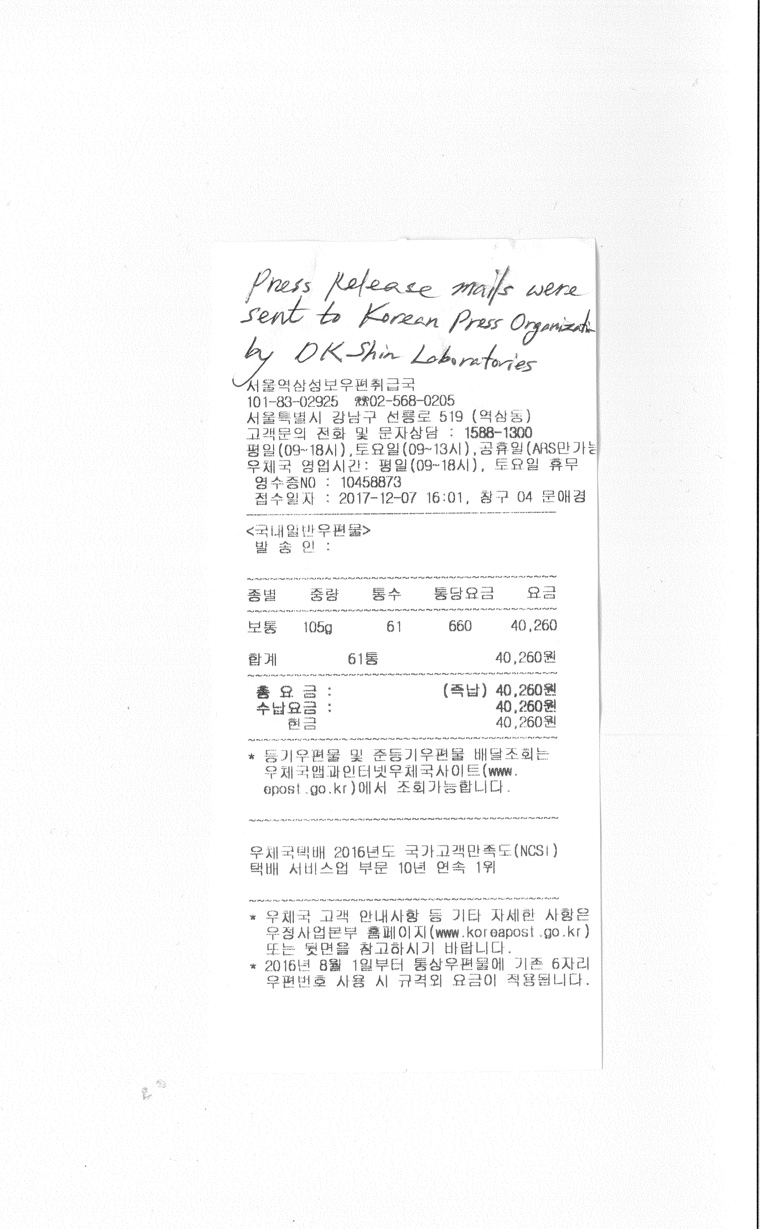 Press Release mails were
sent to Korean Press Organization
by DK Shin Laboratories
서울역삼성보우편취급국
101-83-02925 ☎02-568-0205
서울특별시 강남구 선릉로 519 (역삼동)
고객문의 전화 및 문자상담 : 1588-1300
평일(09~18시),토요일(09~13시),공휴일(ARS만가능
우체국 영업시간: 평일(09~18시), 토요일 휴무
영수증NO : 10458873
접수일자 : 2017-12-07 16:01, 창구 04 문애경
<국내일반우편물>
발 송 인 :
종별 중량 통수 통당요금 요금
보통 105g 61 660 40,260
합계 61통 40,260원
총 요 금 : (즉납) 40,260원
수납요금 : 40,260원
현금 40,260원
* 등기우편물 및 준등기우편물 배달조회는
우체국앱과인터넷우체국사이트(www.
epost.go.kr)에서 조회가능합니다.
우체국택배 2016년도 국가고객만족도(NCSI)
택배 서비스업 부문 10년 연속 1위
* 우체국 고객 안내사항 등 기타 자세한 사항은
우정사업본부 홈페이지(www.koreapost.go.kr)
또는 뒷면을 참고하시기 바랍니다.
* 2016년 8월 1일부터 통상우편물에 기존 6자리
우편번호 사용 시 규격외 요금이 적용됩니다.